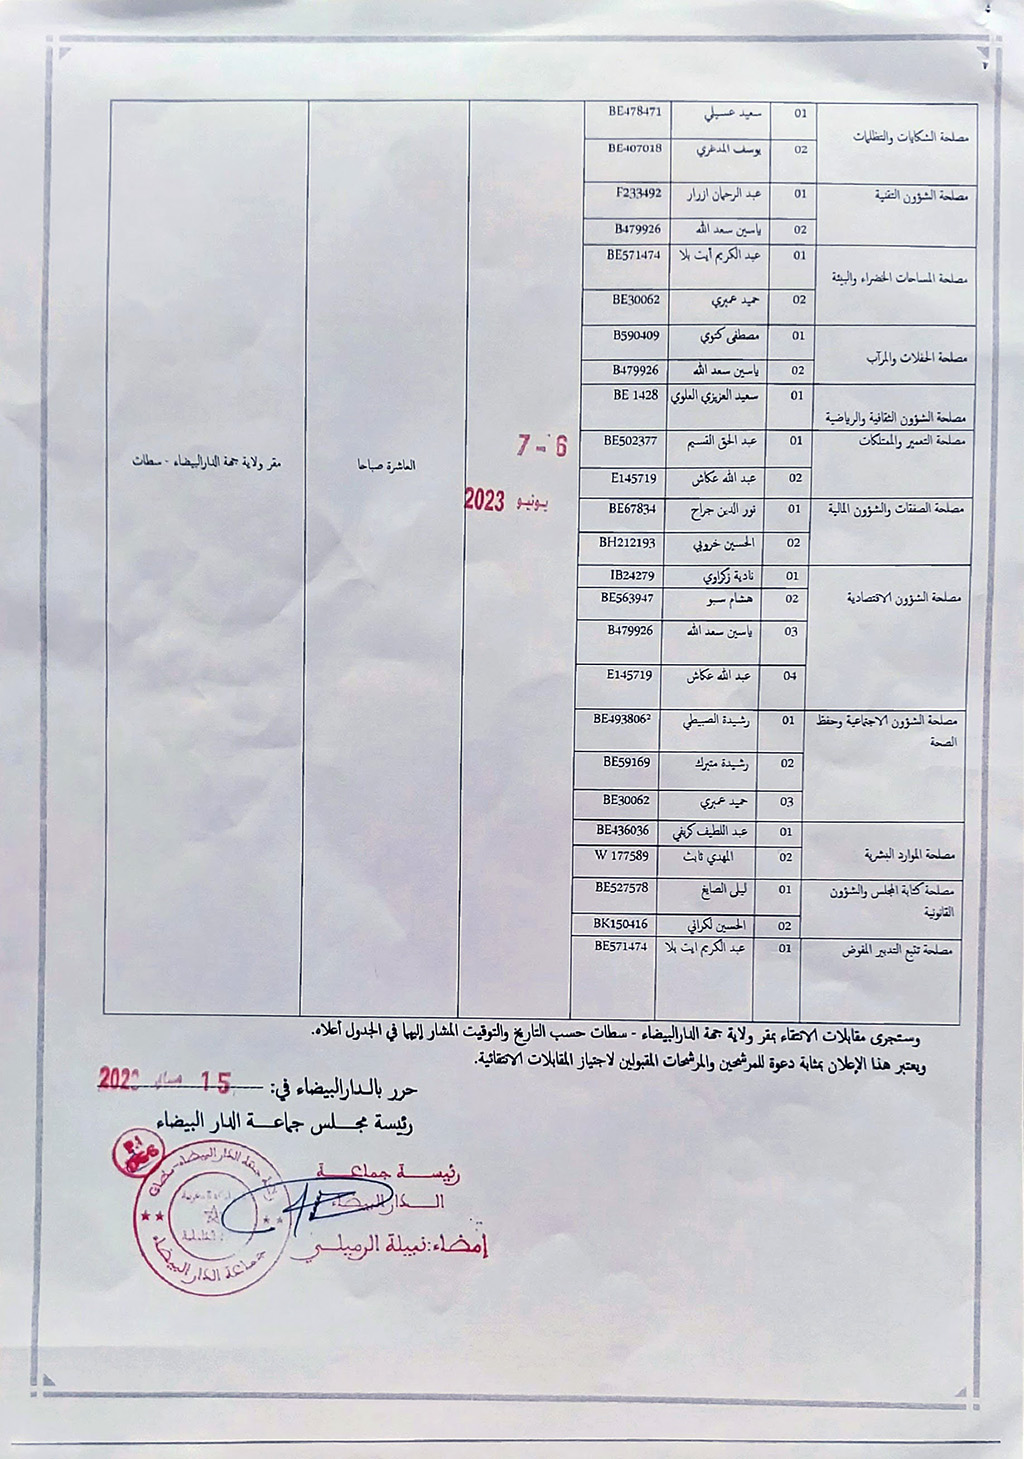 مصلحة الشكايات والتظلمات
01 سعيد عسيلي BE478471
02 يوسف المدغري BE407018
مصلحة الشؤون التقنية
01 عبد الرحمان ازرار F233492
02 ياسين سعد الله B479926
مصلحة المساحات الخضراء والبيئة
01 عبد الكريم أيت بلا BE571474
02 حميد عمبري BE30062
مصلحة الحفلات والمرآب
01 مصطفى كنوي B590409
02 ياسين سعد الله B479926
مصلحة الشؤون الثقافية والرياضية
01 سعيد العزيزي العلوي BE 1428
مصلحة التعمير والممتلكات
01 عبد الحق القسيم BE502377
02 عبد الله عكاش E145719
مصلحة الصفقات والشؤون المالية
01 نور الدين جراح BE67834
02 الحسين خروبي BH212193
مصلحة الشؤون الاقتصادية
01 نادية زكراوي IB24279
02 هشام سبو BE563947
03 ياسين سعد الله B479926
04 عبد الله عكاش E145719
مصلحة الشؤون الاجتماعية وحفظ
الصحة
01 رشيدة الصبيطي BE493806²
02 رشيدة متبرك BE59169
03 حميد عمبري BE30062
مصلحة الموارد البشرية
01 عبد اللطيف كريفي BE436036
02 المهدي ثابث W 177589
مصلحة كتابة المجلس والشؤون
القانونية
01 ليلى الصايغ BE527578
02 الحسين لكراني BK150416
مصلحة تتبع التدبير المفوض
01 عبد الكريم ايت بلا BE571474
7-6
يونيو 2023
العاشرة صباحا
مقر ولاية جهة الدارالبيضاء - سطات
وستجرى مقابلات الانتقاء بمقر ولاية جهة الدارالبيضاء - سطات حسب التاريخ والتوقيت المشار إليهما في الجدول أعلاه.
ويعتبر هذا الإعلان بمثابة دعوة للمرشحين والمرشحات المقبولين لاجتياز المقابلات الانتقائية.
حرر بالدارالبيضاء في: 15
رئيسة مجلس جماعة الدار البيضاء
رئيسة جماعة
الدارالبيضاء
إمضاء: نبيلة الرميلي
جماعة الدار البيضاء